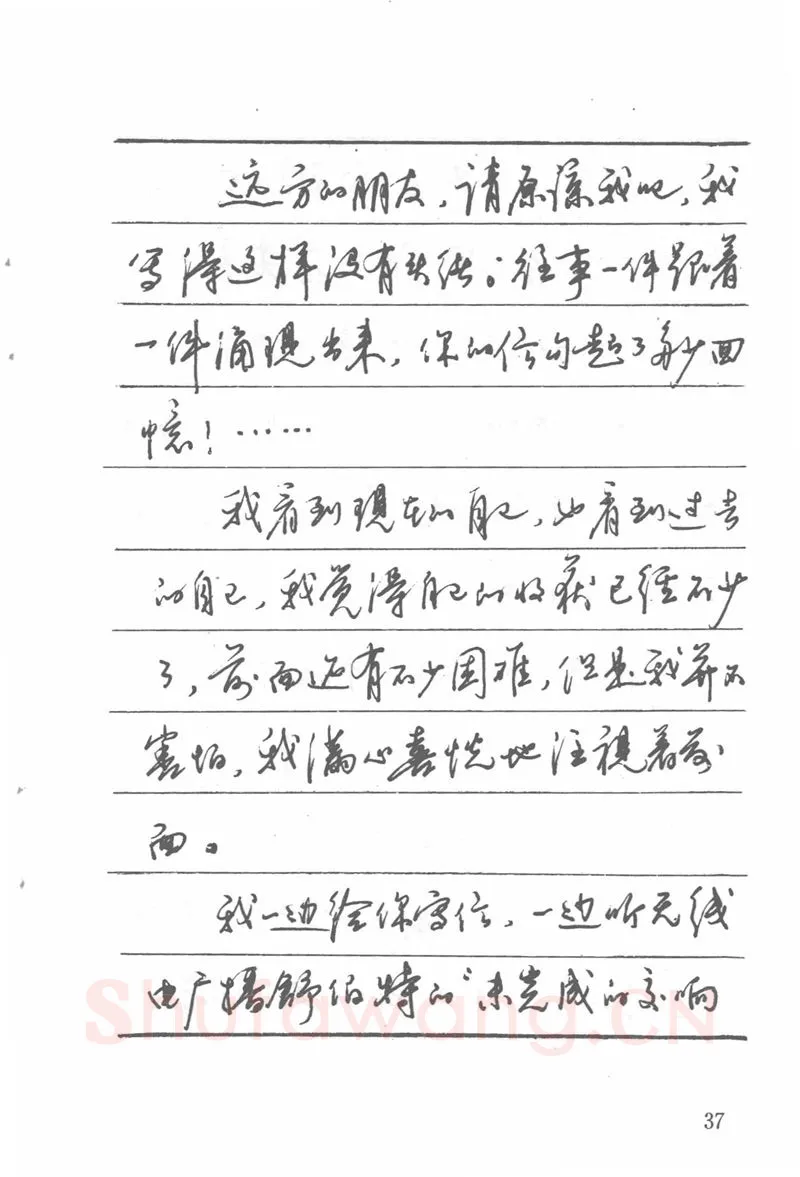 远方的朋友，请原谅我吧，我
写得这样没有头绪；往事一件跟着
一件涌现出来，你的信勾起了多少回
忆！……
我看到现在的自己，也看到过去
的自己，我觉得自己的收获已经不少
了，前面还有不少困难，但是我并不
害怕，我满心喜悦地注视着前
面。
我一边给你写信，一边听无线
电广播舒伯特的“未完成的交响
Shufawang.CN
37